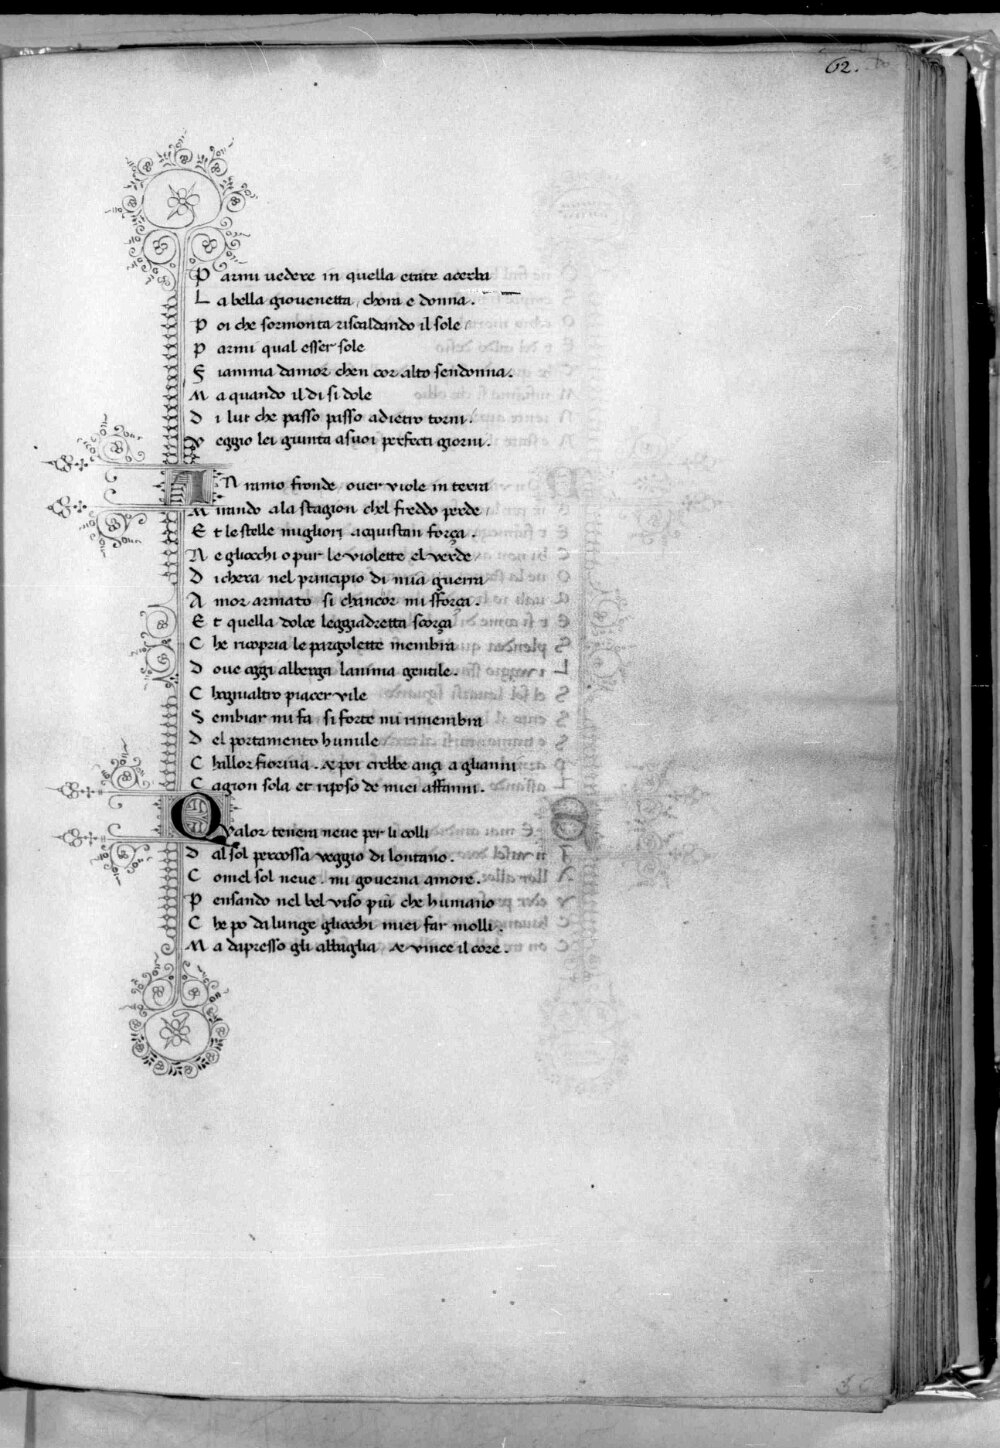 62.
P armi uedere in quella etate acerba
L a bella giouenetta, chora e donna.
P oi che sormonta riscaldando il sole
P armi qual esser sole
F iamma damor chen cor alto sendonna.
M a quando il di si dole
D i lui che passo passo adietro torni.
V eggio lei giunta asuoi perfecti giorni.
I N ramo fronde ouer viole in terra
M irando ala stagion chel freddo perde
E t le stelle migliori acquistan força.
N e gliocchi o pur le violette el verde
D ichera nel principio di mia guerra
A mor armato si chancor mi sforça.
E t quella dolce leggiadretta scorça
C he ricopria le pargolette membra
D oue oggi alberga lanima gentile.
C hogni altro piacer vile
S embiar mi fa si forte mi rimembra
D el portamento humile
C hallor fioriua. & poi crebbe ançi a glianni
C agion sola et riposo de miei affanni.
Q Valor tenera neue per li colli
D al sol percossa veggio di lontano.
C omel sol neue. mi gouerna amore.
P ensando nel bel viso più che humano
C he po da lunge gliocchi miei far molli.
M a dapresso gli abbaglia & vince il core.